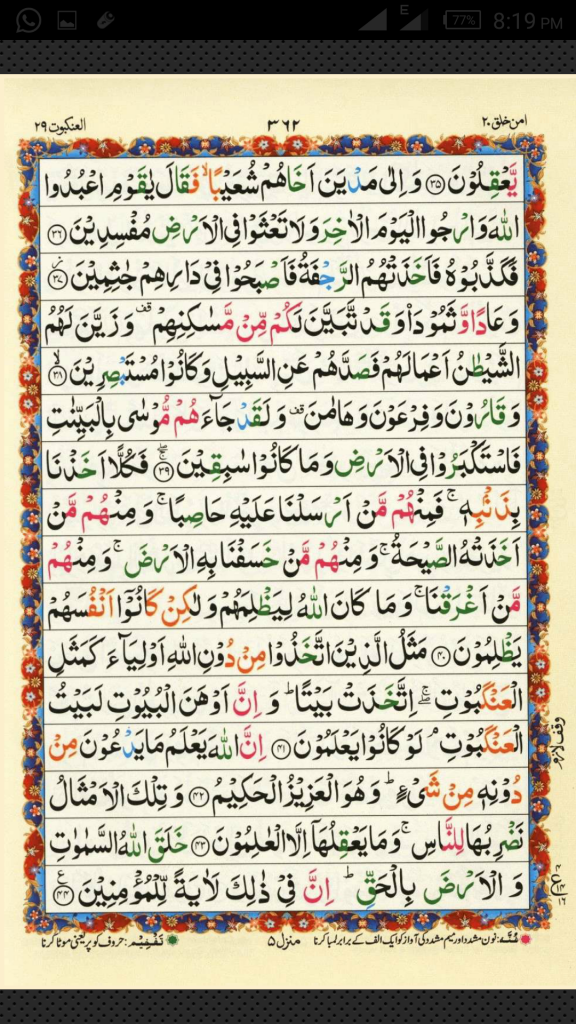 E 77% 8:19 PM
امن خلق ۲۰ ۳۶۲ العنكبوت ۲۹
يَّعۡقِلُوۡنَ ﴿۳۵﴾ وَ اِلٰى مَدۡيَنَ اَخَاهُمۡ شُعَيۡبًا ۙ فَقَالَ يٰقَوۡمِ اعۡبُدُوا
اللّٰهَ وَارۡجُوا الۡيَوۡمَ الۡاٰخِرَ وَ لَا تَعۡثَوۡا فِى الۡاَرۡضِ مُفۡسِدِيۡنَ ﴿۳۶﴾
فَكَذَّبُوۡهُ فَاَخَذَتۡهُمُ الرَّجۡفَةُ فَاَصۡبَحُوۡا فِىۡ دَارِهِمۡ جٰثِمِيۡنَ ﴿۳۷﴾
وَ عَادًا وَّ ثَمُوۡدَا۟ وَ قَدْ تَّبَيَّنَ لَكُمۡ مِّنۡ مَّسٰكِنِهِمۡ ۟ وَ زَيَّنَ لَهُمُ
الشَّيۡطٰنُ اَعۡمَالَهُمۡ فَصَدَّهُمۡ عَنِ السَّبِيۡلِ وَ كَانُوۡا مُسۡتَبۡصِرِيۡنَ ۙ﴿۳۸﴾
وَ قَارُوۡنَ وَ فِرۡعَوۡنَ وَ هَامٰنَ ۟ وَ لَقَدۡ جَآءَهُمۡ مُّوۡسٰى بِالۡبَيِّنٰتِ
فَاسۡتَكۡبَرُوۡا فِى الۡاَرۡضِ وَ مَا كَانُوۡا سٰبِقِيۡنَ ﴿۳۹﴾ فَكُلًّا اَخَذۡنَا
بِذَنۡۢبِهٖ ۚ فَمِنۡهُمۡ مَّنۡ اَرۡسَلۡنَا عَلَيۡهِ حَاصِبًا ۚ وَ مِنۡهُمۡ مَّنۡ
اَخَذَتۡهُ الصَّيۡحَةُ ۚ وَ مِنۡهُمۡ مَّنۡ خَسَفۡنَا بِهِ الۡاَرۡضَ ۚ وَ مِنۡهُمۡ
مَّنۡ اَغۡرَقۡنَا ۚ وَ مَا كَانَ اللّٰهُ لِيَظۡلِمَهُمۡ وَ لٰكِنۡ كَانُوۡۤا اَنۡفُسَهُمۡ
يَظۡلِمُوۡنَ ﴿۴۰﴾ مَثَلُ الَّذِيۡنَ اتَّخَذُوۡا مِنۡ دُوۡنِ اللّٰهِ اَوۡلِيَآءَ كَمَثَلِ
الۡعَنۡكَبُوۡتِ ۖۚ اِتَّخَذَتۡ بَيۡتًا ؕ وَ اِنَّ اَوۡهَنَ الۡبُيُوۡتِ لَبَيۡتُ
الۡعَنۡكَبُوۡتِ ۘ لَوۡ كَانُوۡا يَعۡلَمُوۡنَ ﴿۴۱﴾ اِنَّ اللّٰهَ يَعۡلَمُ مَا يَدۡعُوۡنَ مِنۡ
دُوۡنِهٖ مِنۡ شَىۡءٍ ؕ وَ هُوَ الۡعَزِيۡزُ الۡحَكِيۡمُ ﴿۴۲﴾ وَ تِلۡكَ الۡاَمۡثَالُ
نَضۡرِبُهَا لِلنَّاسِ ۚ وَ مَا يَعۡقِلُهَاۤ اِلَّا الۡعٰلِمُوۡنَ ﴿۴۳﴾ خَلَقَ اللّٰهُ السَّمٰوٰتِ
وَ الۡاَرۡضَ بِالۡحَقِّ ؕ اِنَّ فِىۡ ذٰلِكَ لَاٰيَةً لِّلۡمُؤۡمِنِيۡنَ ﴿۴۴﴾
وقف لازم
غُنَّه: نون مشدد اور میم مشدد کی آواز کو ایک الف کے برابر لمبا کرنا منزل ۵ تفخیم: حروف کو پر یعنی موٹا کرنا